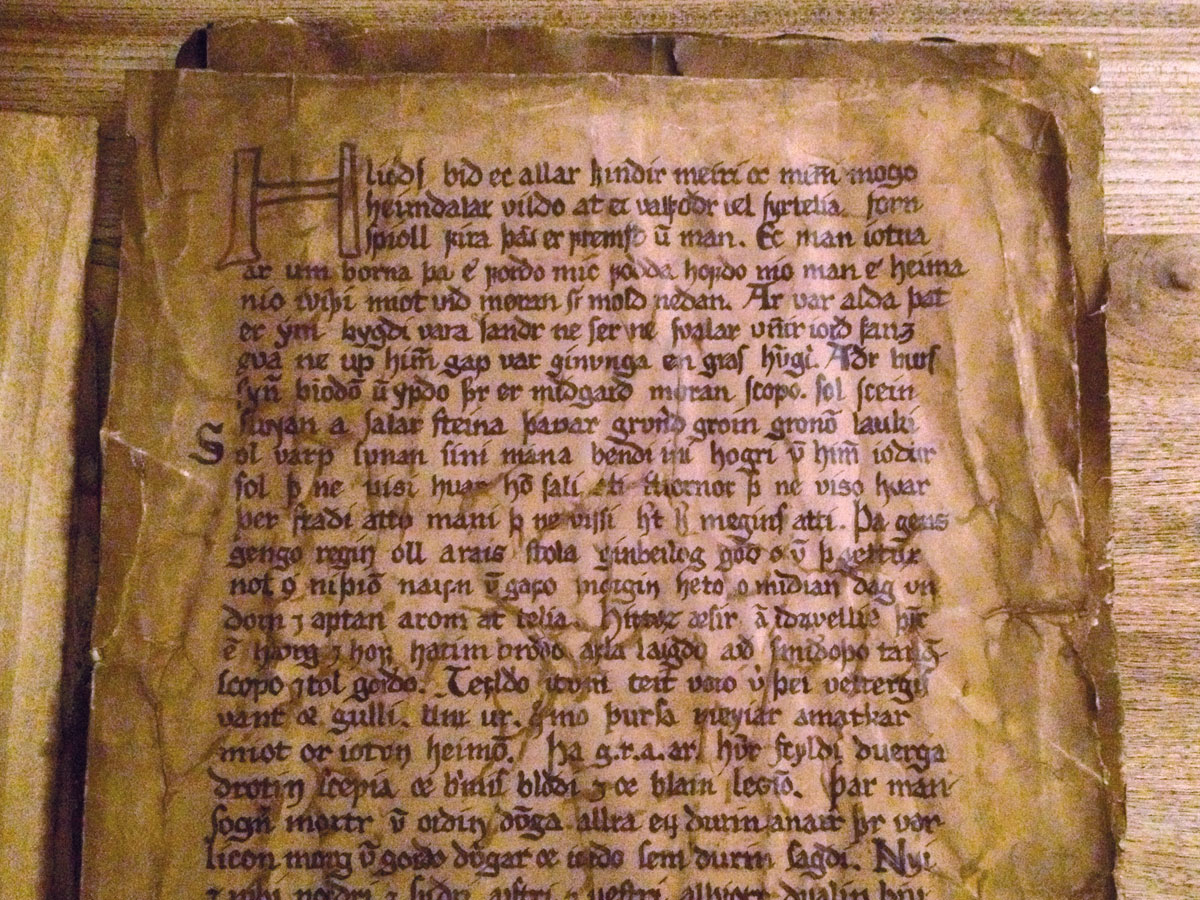 Hliods bid ec allar kindir meiri oc miñi mogo
heimdalar vildo at ec valfodr vel fyrtelia forn
spioll fira þau er fremst ū man. Ec man iotna
ar um borna þa e᷒ fordo mic fodda hofdo nio man ec heima
nio iviþi miot vid møran fr̄ mold nedan. Ar var alda þat
er ym bygdi vara sandr ne ser ne svalar uñir iord fanz
eva ne up himn̄ gap var ginunga en gras hvgi. Adr burs
syn̄ biodō ū ypdo þr er midgard møran scopo. sol scein
sunan a salar steina þa var grund groin grønō lauki
Sol varp sunan sini mana hendi høgri ū himn̄ iodur
sol þ ne visi hvar hō sali atti stiornor þ ne viso hvar
þer stadi atto mani þ ne vissi hvat megins atti. Þa gens
gengo regin oll a rais stola ginheilog god o ū þ
not o niþiō nafn ū gafo morgin heto o midian dag un
dorn ⁊ aptan arom at telia. Hittoz æsir a idavelli þeir
horg ⁊ hof hatim brodo afla lagdo aud smidopo tang
scopo ⁊ tol gordo. Tefldo i tuni teit voro v þei vettergis
vant oc gulli. unz þursa meyiar amatkar
miot or iotun heimō. Þa g.r.a.ar. hv̄r scyldi duerga
drotin scepia oc brimis blodi ⁊ oc blain legiō. Þar man
sogn̄ mortr ū ordin dv̄ga allra en durin anarr þr
licon morg ū gordo dv̄gar oc iordo sem durin sagdi. Nyi
⁊ niþi nordri ⁊ sudri austri ⁊ vestri alþiofr dualin